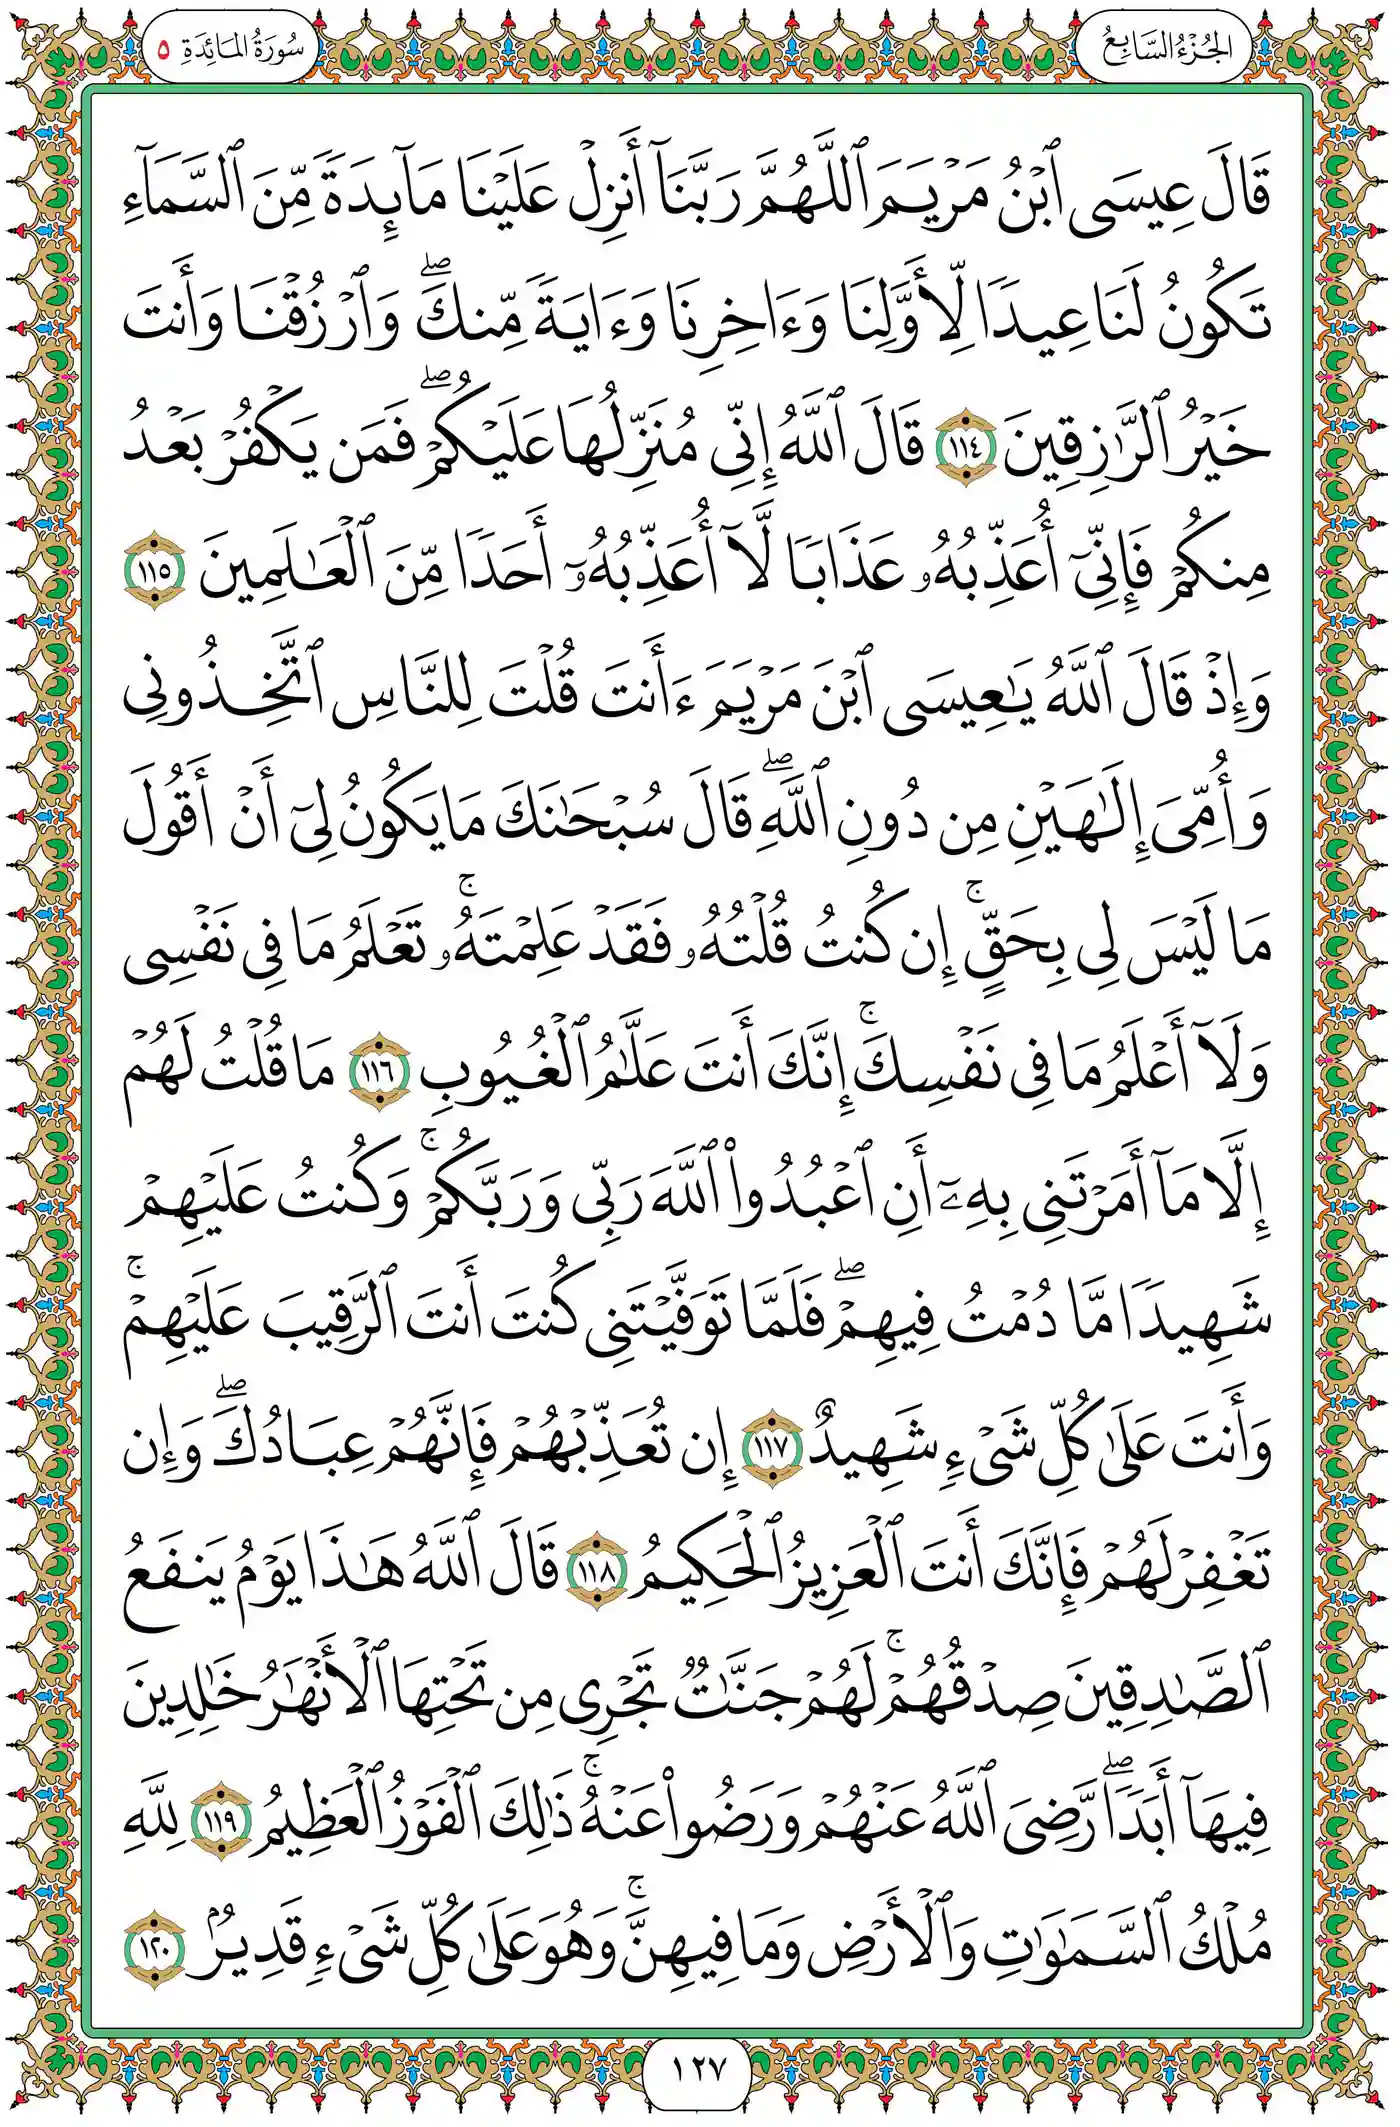 الجُزْءُ السَّابِعُ
سُورَةُ المَائِدَةِ ٥
قَالَ عِيسَى ٱبْنُ مَرْيَمَ ٱللَّهُمَّ رَبَّنَآ أَنزِلْ عَلَيْنَا مَآئِدَةً مِّنَ ٱلسَّمَآءِ
تَكُونُ لَنَا عِيدًا لِّأَوَّلِنَا وَءَاخِرِنَا وَءَايَةً مِّنكَۖ وَٱرْزُقْنَا وَأَنتَ
خَيْرُ ٱلرَّٰزِقِينَ ١١٤ قَالَ ٱللَّهُ إِنِّى مُنَزِّلُهَا عَلَيْكُمْۖ فَمَن يَكْفُرْ بَعْدُ
مِنكُمْ فَإِنِّىٓ أُعَذِّبُهُۥ عَذَابًا لَّآ أُعَذِّبُهُۥٓ أَحَدًا مِّنَ ٱلْعَٰلَمِينَ ١١٥
وَإِذْ قَالَ ٱللَّهُ يَٰعِيسَى ٱبْنَ مَرْيَمَ ءَأَنتَ قُلْتَ لِلنَّاسِ ٱتَّخِذُونِى
وَأُمِّىَ إِلَٰهَيْنِ مِن دُونِ ٱللَّهِۖ قَالَ سُبْحَٰنَكَ مَا يَكُونُ لِىٓ أَنْ أَقُولَ
مَا لَيْسَ لِى بِحَقٍّۚ إِن كُنتُ قُلْتُهُۥ فَقَدْ عَلِمْتَهُۥۚ تَعْلَمُ مَا فِى نَفْسِى
وَلَآ أَعْلَمُ مَا فِى نَفْسِكَۚ إِنَّكَ أَنتَ عَلَّٰمُ ٱلْغُيُوبِ ١١٦ مَا قُلْتُ لَهُمْ
إِلَّا مَآ أَمَرْتَنِى بِهِۦٓ أَنِ ٱعْبُدُوا۟ ٱللَّهَ رَبِّى وَرَبَّكُمْۚ وَكُنتُ عَلَيْهِمْ
شَهِيدًا مَّا دُمْتُ فِيهِمْۖ فَلَمَّا تَوَفَّيْتَنِى كُنتَ أَنتَ ٱلرَّقِيبَ عَلَيْهِمْۚ
وَأَنتَ عَلَىٰ كُلِّ شَىْءٍ شَهِيدٌ ١١٧ إِن تُعَذِّبْهُمْ فَإِنَّهُمْ عِبَادُكَۖ وَإِن
تَغْفِرْ لَهُمْ فَإِنَّكَ أَنتَ ٱلْعَزِيزُ ٱلْحَكِيمُ ١١٨ قَالَ ٱللَّهُ هَٰذَا يَوْمُ يَنفَعُ
ٱلصَّٰدِقِينَ صِدْقُهُمْۚ لَهُمْ جَنَّٰتٌ تَجْرِى مِن تَحْتِهَا ٱلْأَنْهَٰرُ خَٰلِدِينَ
فِيهَآ أَبَدًاۖ رَّضِىَ ٱللَّهُ عَنْهُمْ وَرَضُوا۟ عَنْهُۚ ذَٰلِكَ ٱلْفَوْزُ ٱلْعَظِيمُ ١١٩ لِلَّهِ
مُلْكُ ٱلسَّمَٰوَٰتِ وَٱلْأَرْضِ وَمَا فِيهِنَّۚ وَهُوَ عَلَىٰ كُلِّ شَىْءٍ قَدِيرٌۢ ١٢٠
١٢٧